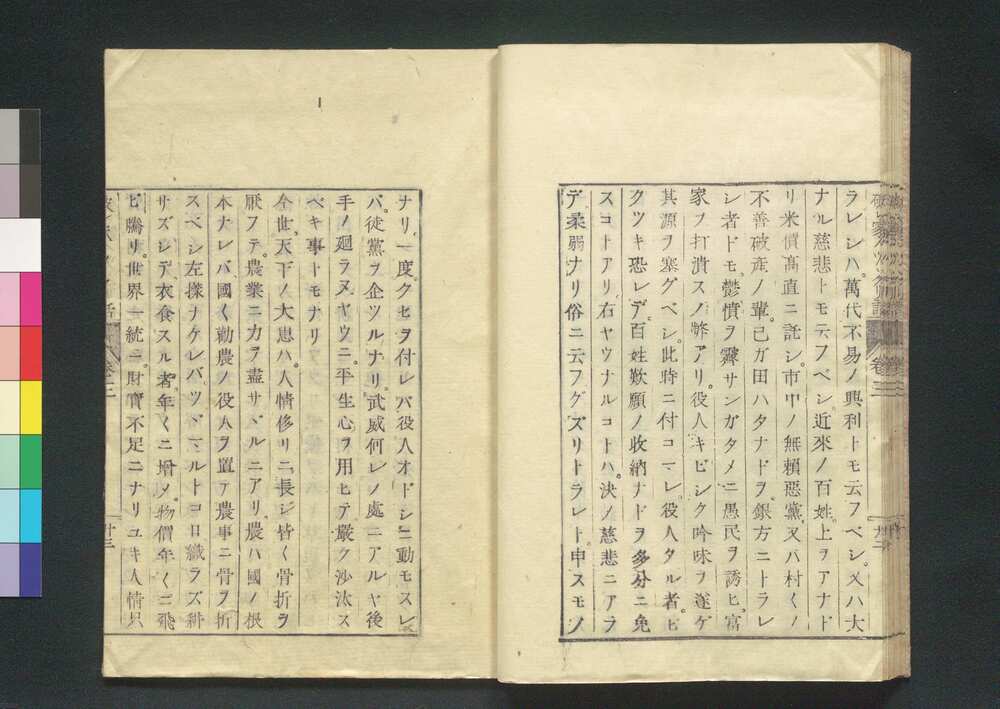 ラレシハ。萬代不易ノ興利トモ云フベシ。又ハ大
ナル慈悲トモ云フベシ。近來ノ百姓。上ヲアナド
リ米價高直ニ託シ。市中ノ無頼惡黨。又ハ村〱ノ
不善破産ノ輩。已ガ田ハタナドヲ。銀方ニトラレ
シ者ドモ鬱憤ヲ霽サンガタメニ愚民ヲ誘ヒ。富
家ヲ打潰スノ弊アリ。役人キビシク吟味ヲ遂ゲ
其源ヲ塞グベシ。此時ニ付コマレ。役人タル者。ビ
クツキ恐レテ。百姓歎願ノ收納ナドヲ多分ニ免
スコトアリ。右ヤウナルコトハ。決ノ慈悲ニアラ
デ柔弱ナリ俗ニ云フグズリトラレト。申スモノ
ナリ。一度クセヲ付レバ役人オドシニ動モスレ
バ。徒黨ヲ企ツルナリ。武威何レノ處ニアルヤ後
手ノ廻ラヌヤウニ。平生心ヲ用ヒテ嚴ク沙汰ス
ベキ事トモナリ
今世。天下ノ大患ハ。人情侈リニ長ジ皆〱骨折ヲ
厭フテ。農業ニ力ヲ盡サヾルニアリ。農ハ國ノ根
本ナレバ國〱勸農ノ役人ヲ置テ農事ニ骨ヲ折
スベシ左樣ナケレバツヾマルトコロ織ラズ耕
サズシテ。衣食スル者。年〱ニ增メ。物價年〱ニ飛
ビ騰リ。世界一統ニ。財寶不足ニナリユキ人情只
卷三
廿三